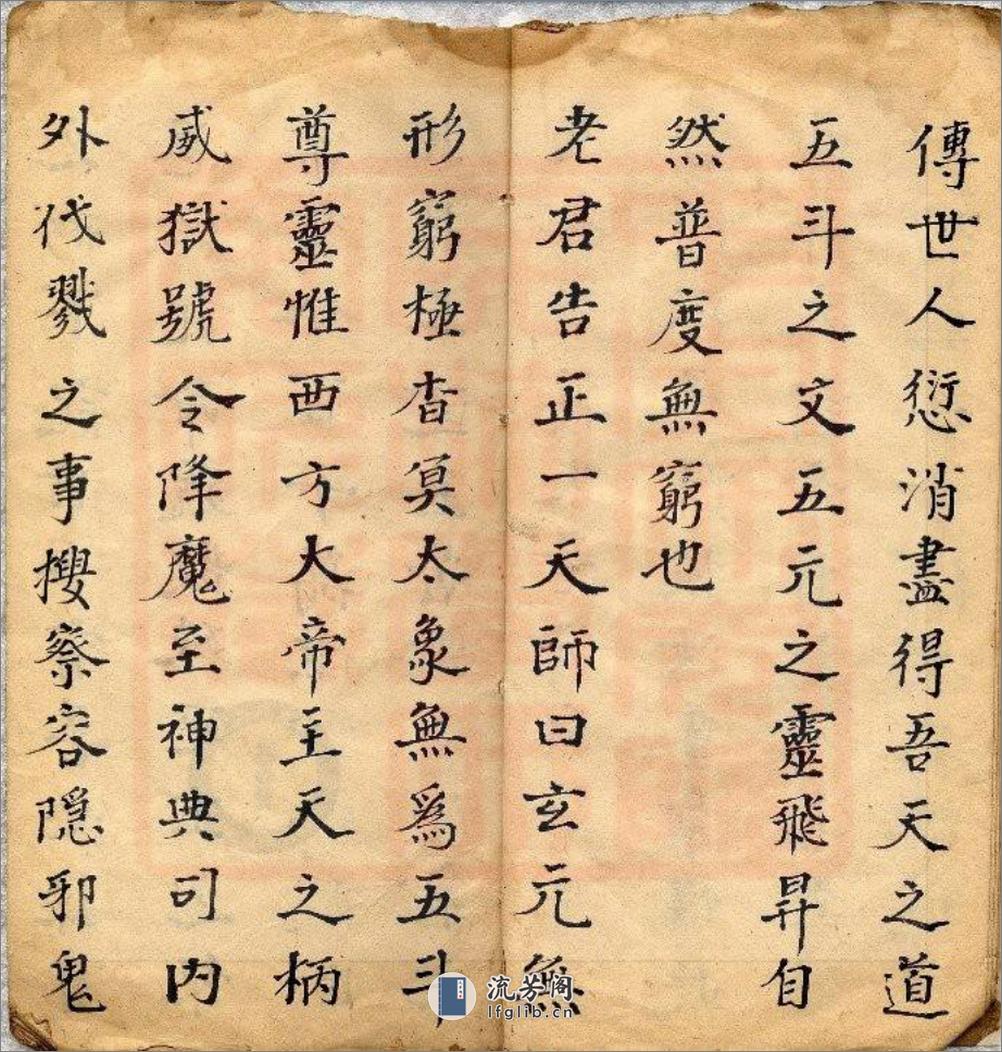 傳世人愆消盡得吾天之道
五斗之文五元之靈飛昇自
然普度無窮也
老君告正一天師曰玄元無
形窮極杳冥太象無為五斗
尊靈惟西方大帝主天之柄
威獄號令降魔至神典司内
外伐戮之事搜察容隱邪鬼
流芳阁
lfglib.cn